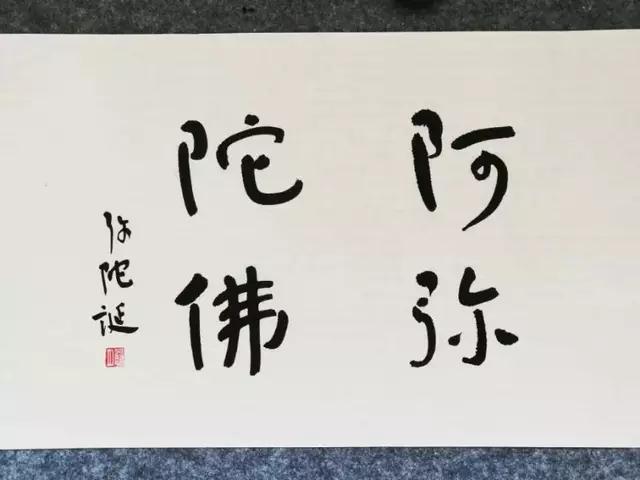 阿弥
陀佛
弥陀诞